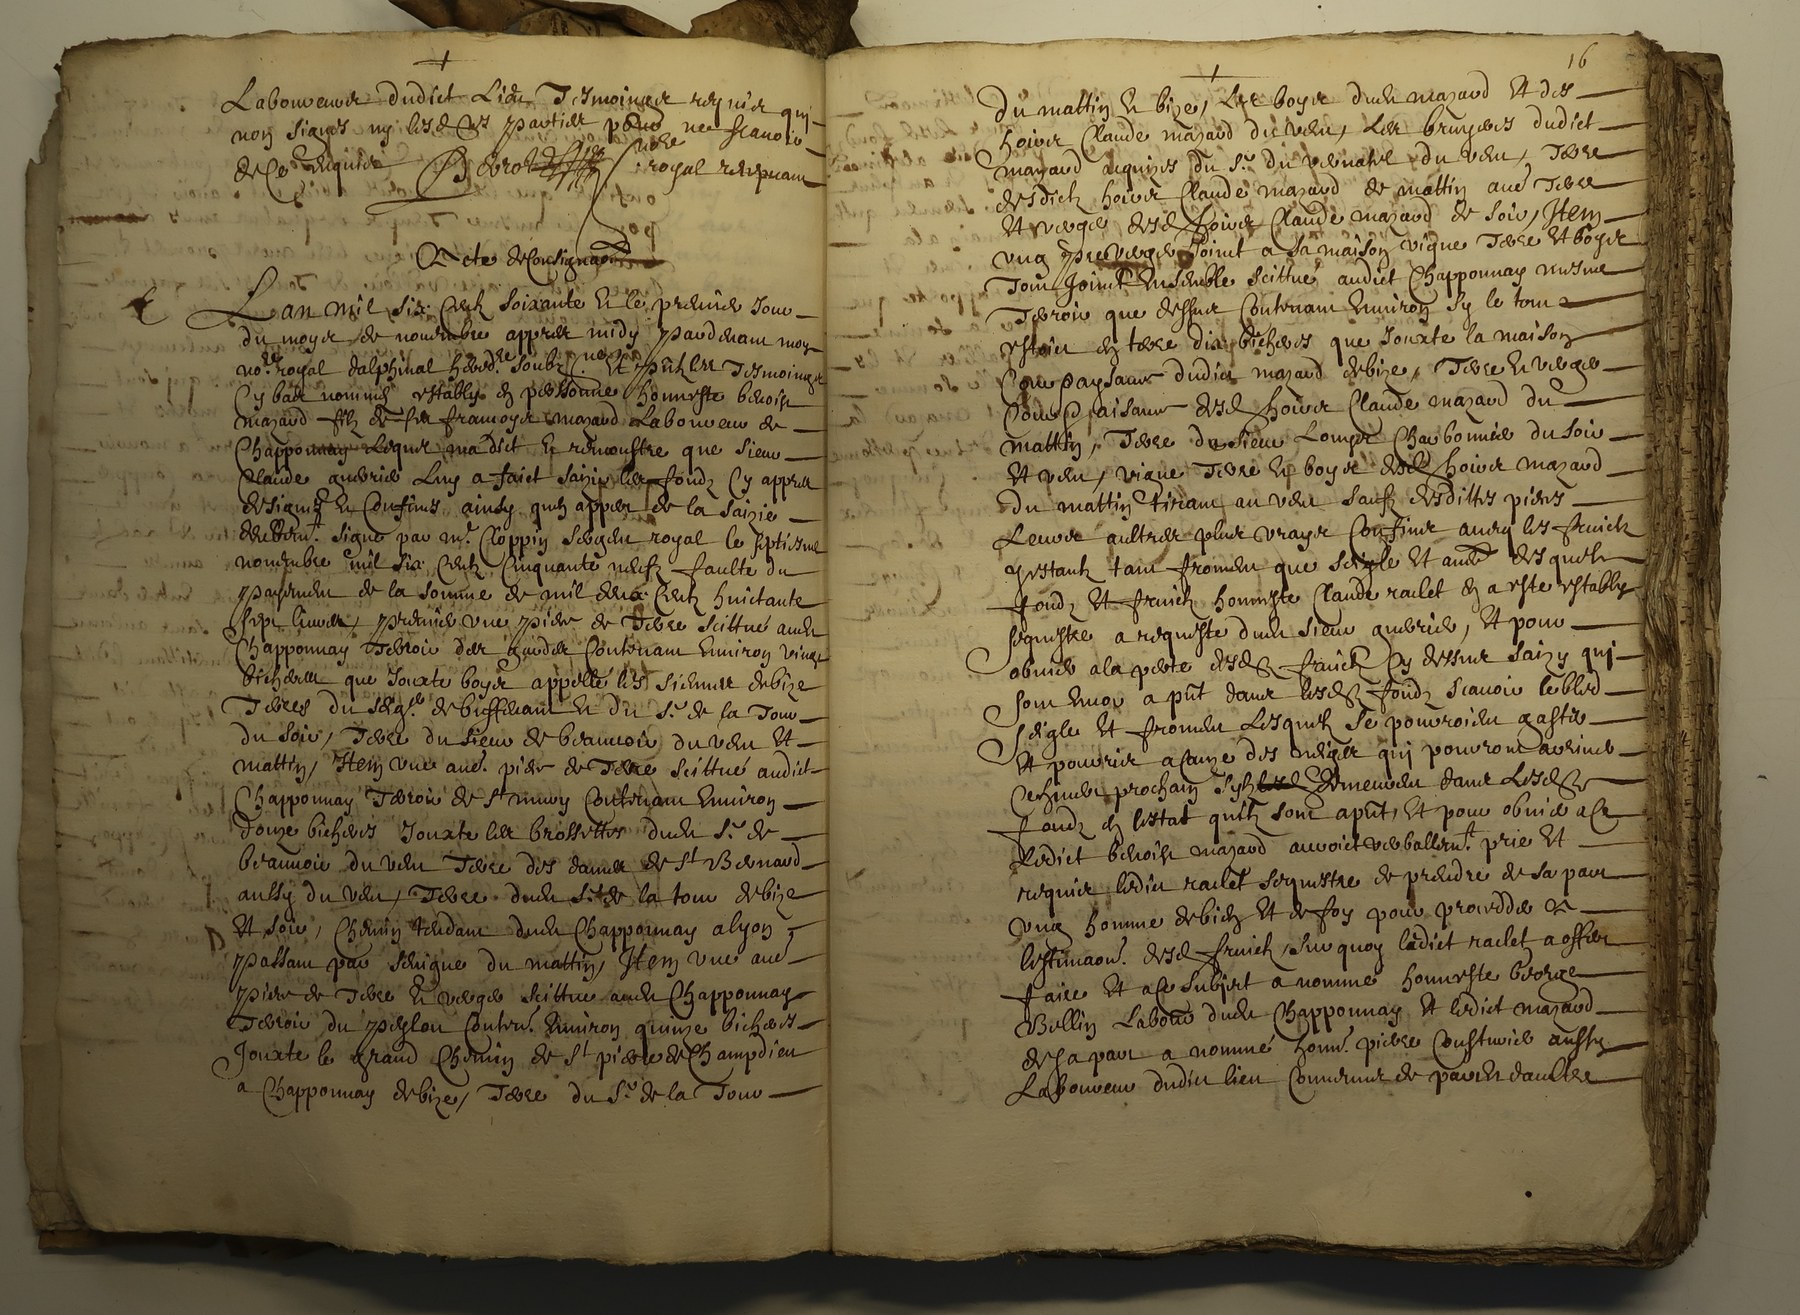 Laboureurs dudict Lieu Tesmoingtz requier qui
non signés ny lesd parties pour ne scavoir
de ce enquis royal recepuant
Acte de Consigna
L'an mil six Centz soixante et le premier Jour
du moys de novembre appres midy pardevant moy
no.re royal dalphinal hered.re soubz.né et p̄ntz les Tesmoingtz
Cy bas nommés estably en personne honneste benoist
mazard filz de feu francoys mazard Laboureur de
Chapponnay Lequel ma dict et remonstre que sieur
Claude Luy a faict saizir les fondz Cy appres
designés et Confinés ainsy quil appert de la saizie
signé par m.e Cloppin sergent royal le septiesme
novembre mil six Centz Cinquante neufz faulte du
payement de la somme de mil deux Centz huictante
sept livres, premier une piece de Terre scittué aud
Chapponnay Terroir des Contenant Environ vingt
bicherees que Jouxte boys appellé les debize
Terres du de buffevant et du S.r de la Tour
du soir, Terre du sieur de beauvoir du vent et
mattin, Item une au.e piece de Terre scittué audict
Chapponnay Terroir de S.t Contenant Environ
douze bicherés Jouxte les brossettes dud S.r de
beauvoir du vent Terre des dames de S.t Bernard
aussy du vent, Terre dud S.r de la tour de bize
et soir, Chemin tendant dud Chapponnay a lyon
passant par du mattin, Item une au.e
piece de Terre et verger scittué aud Chapponnay
Terroir du Conten.t Environ quinze bicherés
Jouxte le grand Chemin de S.t pierre de Champdieu
a Chapponnay de bize, Terre du S.r de la Tour
16
Du mattin et bize, Les boys dud mazard et des
hoirs Claude mazard du vent, Les bruyeres dudict
mazard acquises du S.r du du vent, Terre
desdictz hoirs Claude mazard de mattin au.e Terre
et verger desd hoirs Claude mazard de soir, Item
ung pre verger Joinct a sa maison vigne Terre et boys
Tout Joinct Ensemble scittué audict Chapponnay mesme
Terroir que dessus Contenant Environ sy le tout
estoit en terre dix bicherés que Jouxte la maison
Cour dudict mazard debize, Terre et verger
Cour desd hoirs Claude mazard du
mattin, Terre du sieur Louys Charbonnier du soir
et vent, vigne Terre et boys desd hoirs mazard
du mattin tirant au vent saufz desdittes pieces
Leurs aultres plus vrays Confins avecq les fruictz
y estantz tant froment que seigle et au.e desquels
fondz et fruictz honneste Claude raclet en a esté estably
sequestre a requeste dud sieur , et pour
obvier a la perte desd fruictz Cy dessus saizy qui
sont encor a p̄nt dans lesd fondz scavoir le bled
seigle et froment Lesquelz se pourroient gaster
et pourrir a Cause des neiges qui pourront advenir
Cest hiver prochain sy demeurent dans Lesd
fondz en lestat quilz sont a p̄nt, et pour obvier a Ce
Ledict benoist mazard auroict verballem.t prié et
requier ledict raclet sequestre de prendre de sa part
ung homme de bien et de foy pour proceder a
lestima.on desd fruictz, sur quoy ledict raclet a offert
faire et a Ce subject a nommé honneste George
Bellin Labour dud Chapponnay et ledict mazard
de sa part a nommé honn.e pierre aussy
Laboureur dudict lieu Convenus de part et daultre